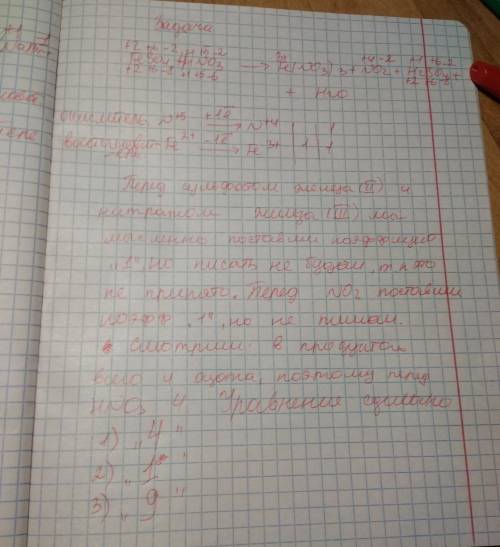 Задача
+2 +6 -2 +1 +5 -2
FeSO4 + HNO3 → Fe(NO3)3 + NO2 + H2SO4 +
+ H2O
окислитель N+5 +1e → N+4 | 1
восстановит Fe2+ -1e → Fe3+ | 1 | 1
Перед сульфатом железа (II) и
нитратом железа (III) мы
мысленно поставим коэффициент
„1", но писать не будем, т к это
не принято. Перед NO2 поставим
коэфф „1", но не пишем.
Смотрим в продуктах
всего 4 азота, поэтому перед
HNO3 4. Уравнение
1) „4"
2) „1"
3) „9"